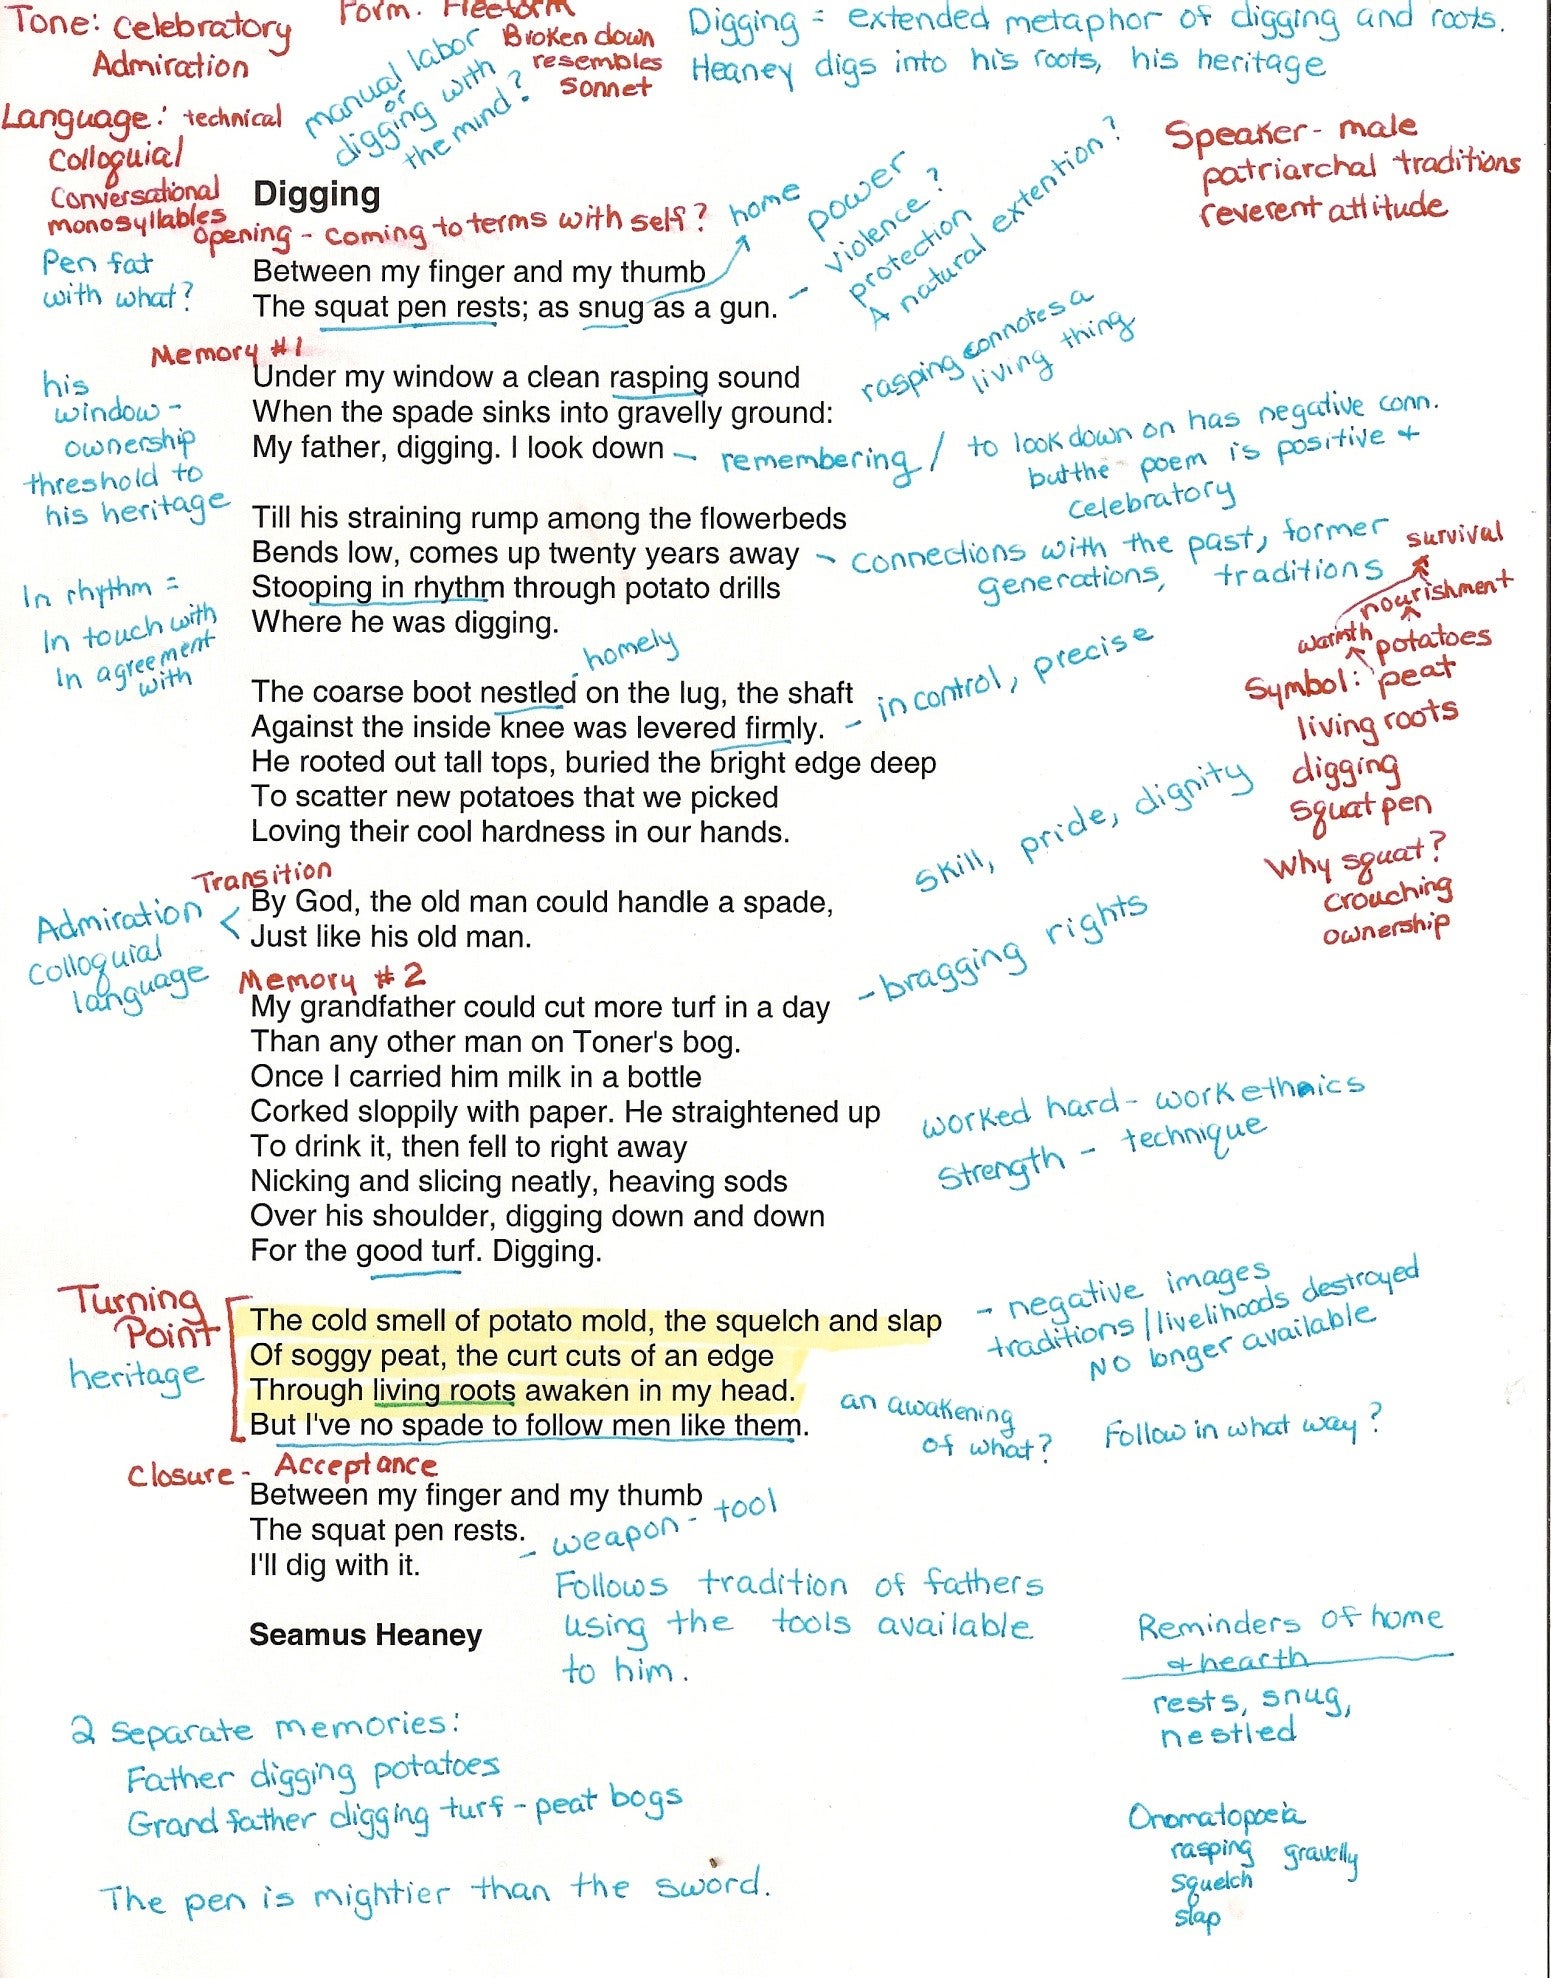 Tone: Celebratory
Admiration
Form: Freeform
Broken down
resembles
Sonnet
Digging = extended metaphor of digging and roots.
Heaney digs into his roots, his heritage
manual labor
or
digging with
the mind?
Language: technical
Colloquial
Conversational
monosyllables
Speaker - male
patriarchal traditions
reverent attitude
Digging
opening - coming to terms with self?
home
power
violence?
protection
A natural extention?
Pen fat
with what?
Between my finger and my thumb
The squat pen rests; as snug as a gun. -
Memory #1
his
window -
ownership
threshold to
his heritage
Under my window a clean rasping sound
When the spade sinks into gravelly ground:
My father, digging. I look down
rasping connotes a
living thing
- remembering / to look down on has negative conn.
but the poem is positive +
celebratory
Till his straining rump among the flowerbeds
Bends low, comes up twenty years away
Stooping in rhythm through potato drills
Where he was digging.
- connections with the past, former
generations, traditions
In rhythm =
In touch with
In agreement
with
survival
nourishment
warmth potatoes
Symbol: peat
living roots
digging
squat pen
Why squat?
crouching
ownership
homely
The coarse boot nestled on the lug, the shaft
Against the inside knee was levered firmly.
He rooted out tall tops, buried the bright edge deep
To scatter new potatoes that we picked
Loving their cool hardness in our hands.
- in control, precise
skill, pride, dignity
Transition
Admiration <
Colloquial
language
By God, the old man could handle a spade,
Just like his old man.
Memory #2
- bragging rights
My grandfather could cut more turf in a day
Than any other man on Toner's bog.
Once I carried him milk in a bottle
Corked sloppily with paper. He straightened up
To drink it, then fell to right away
Nicking and slicing neatly, heaving sods
Over his shoulder, digging down and down
For the good turf. Digging.
worked hard - work ethnics
Strength - technique
Turning
Point
heritage
The cold smell of potato mold, the squelch and slap
Of soggy peat, the curt cuts of an edge
Through living roots awaken in my head.
But I've no spade to follow men like them.
- negative images
traditions/livelihoods destroyed
NO longer available
an awakening
of what?
Follow in what way?
Closure - Acceptance
Between my finger and my thumb
The squat pen rests.
I'll dig with it.
- weapon - tool
Follows tradition of fathers
using the tools available
to him.
Seamus Heaney
Reminders of home
+ hearth
rests, snug,
nestled
2 separate memories:
Father digging potatoes
Grandfather digging turf - peat bogs
Onomatopoeia
rasping gravelly
squelch
slap
The pen is mightier than the sword.